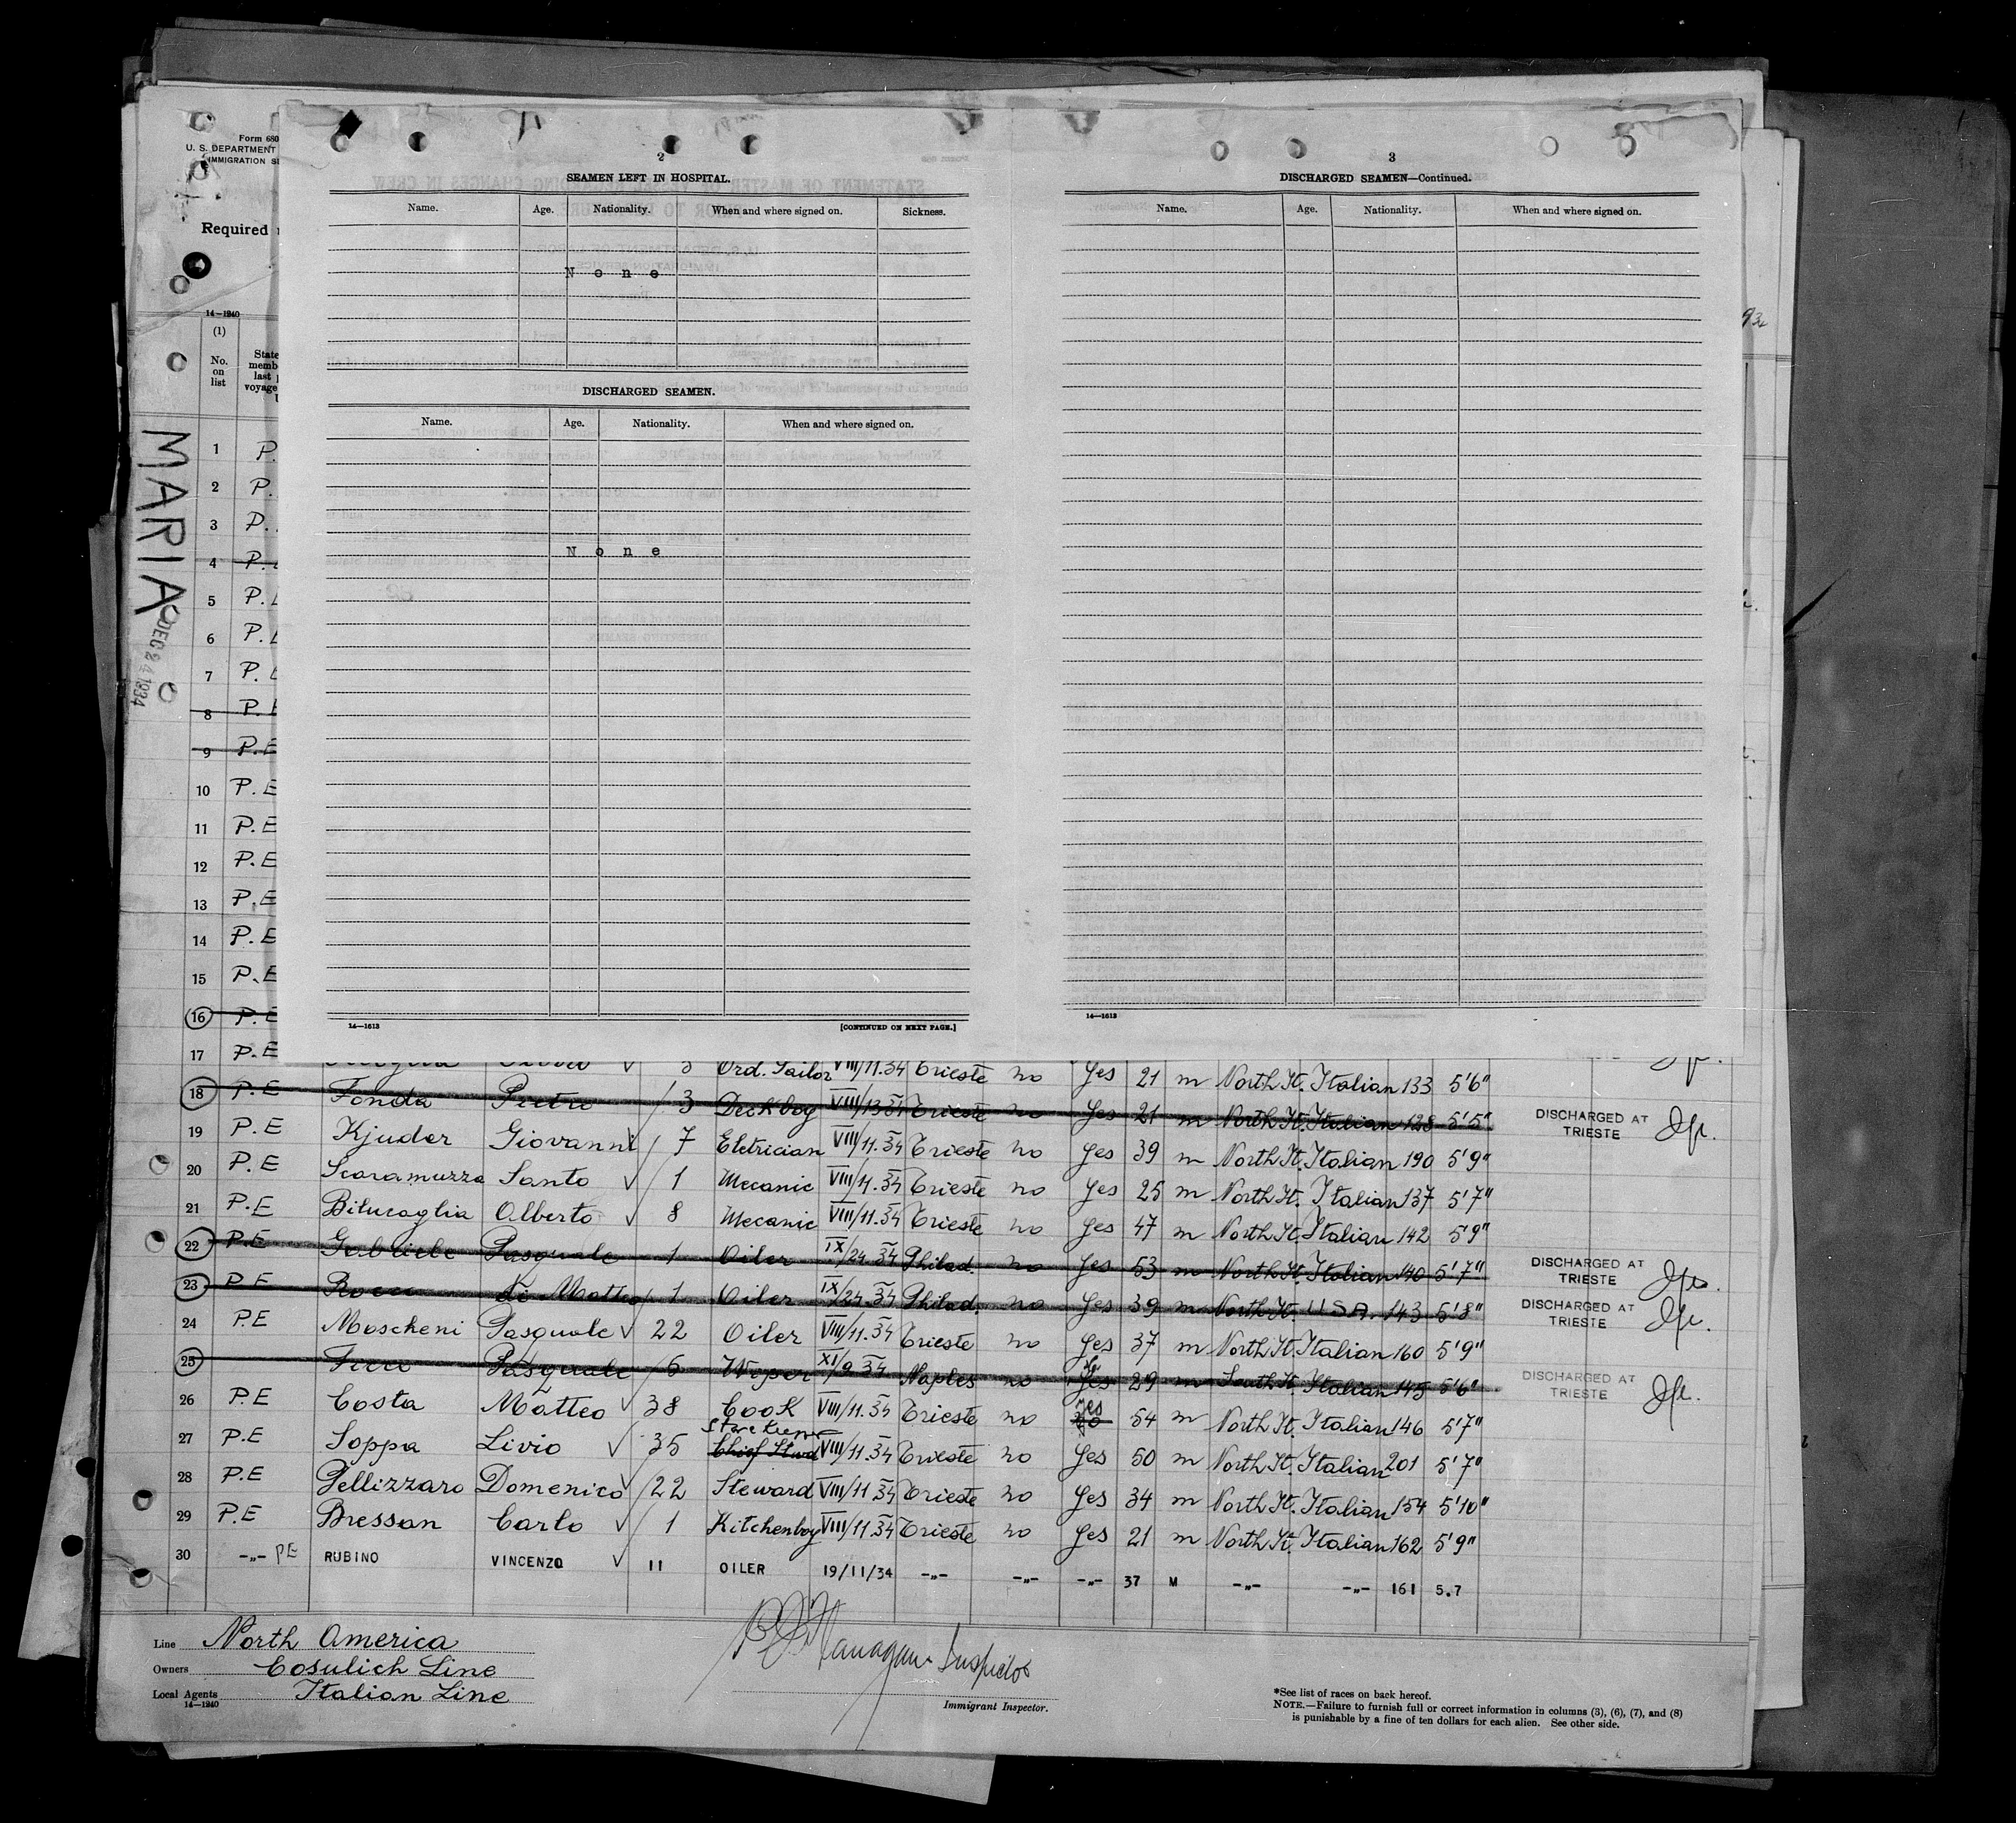 Form 680
U. S. DEPARTMENT
IMMIGRATION
Required
14—1240
(1)
No. on list
MARIA
DEC 24 1934
2
SEAMEN LEFT IN HOSPITAL.
Name. Age. Nationality. When and where signed on. Sickness.
None
DISCHARGED SEAMEN.
Name. Age. Nationality. When and where signed on.
None
14—1613 [CONTINUED ON NEXT PAGE.]
3
DISCHARGED SEAMEN—Continued.
Name. Age. Nationality. When and where signed on.
14—1613
1 P.
2 P.
3 P.
4 P.
5 P.
6 P.
7 P.
8 P.
9 P.E
10 P.E
11 P.E
12 P.E
13 P.E
14 P.E
15 P.E
16 P.E
17 P.E Ord. Sailor VIII/11.34 Trieste no Yes 21 m North It. Italian 133 5'6"
18 P.E Fonda Pietro 3 Deckboy VIII/13 34 Trieste no Yes 21 m North It. Italian 128 5'5" DISCHARGED AT TRIESTE
19 P.E Kjuder Giovanni 7 Eletrician VIII/11.34 Trieste no Yes 39 m North It. Italian 190 5'9"
20 P.E Scaramuzza Santo 1 Mecanic VIII/11.34 Trieste no Yes 25 m North It. Italian 137 5'7"
21 P.E Bitucaglia Alberto 8 Mecanic VIII/11.34 Trieste no Yes 47 m North It. Italian 142 5'9"
22 P.E Gabriele Pasquale 1 Oiler IX/24.34 Philad. no Yes 53 m North It. Italian 140 5'7" DISCHARGED AT TRIESTE
23 P.E Rocco di Matteo 1 Oiler IX/24.34 Philad. no Yes 39 m North It. U S A. 143 5'8" DISCHARGED AT TRIESTE
24 P.E Moscheni Pasquale 22 Oiler VIII/11.34 Trieste no Yes 37 m North It. Italian 160 5'9"
25 Pasquale 6 Wiper XI/9 34 Naples no Yes 29 m South It. Italian 145 5'6" DISCHARGED AT TRIESTE
26 P.E Costa Matteo 38 Cook VIII/11.34 Trieste no yes 54 m North It. Italian 146 5'7"
27 P.E Soppa Livio 35 Chief Stwd VIII/11.34 Trieste no Yes 50 m North It. Italian 201 5'7"
28 P.E Pellizzaro Domenico 22 Steward VIII/11.34 Trieste no Yes 34 m North It. Italian 154 5'10"
29 P.E Bressan Carlo 1 Kitchenboy VIII/11.34 Trieste no Yes 21 m North It. Italian 162 5'9"
30 -"- PE RUBINO VINCENZO 11 OILER 19/11/34 -"- -"- -"- 37 M -"- -"- 161 5.7
Line North America
Owners Cosulich Line
Local Agents Italian Line
14—1240
Flanagan Inspector
Immigrant Inspector.
*See list of races on back hereof.
NOTE.—Failure to furnish full or correct information in columns (3), (6), (7), and (8)
is punishable by a fine of ten dollars for each alien. See other side.